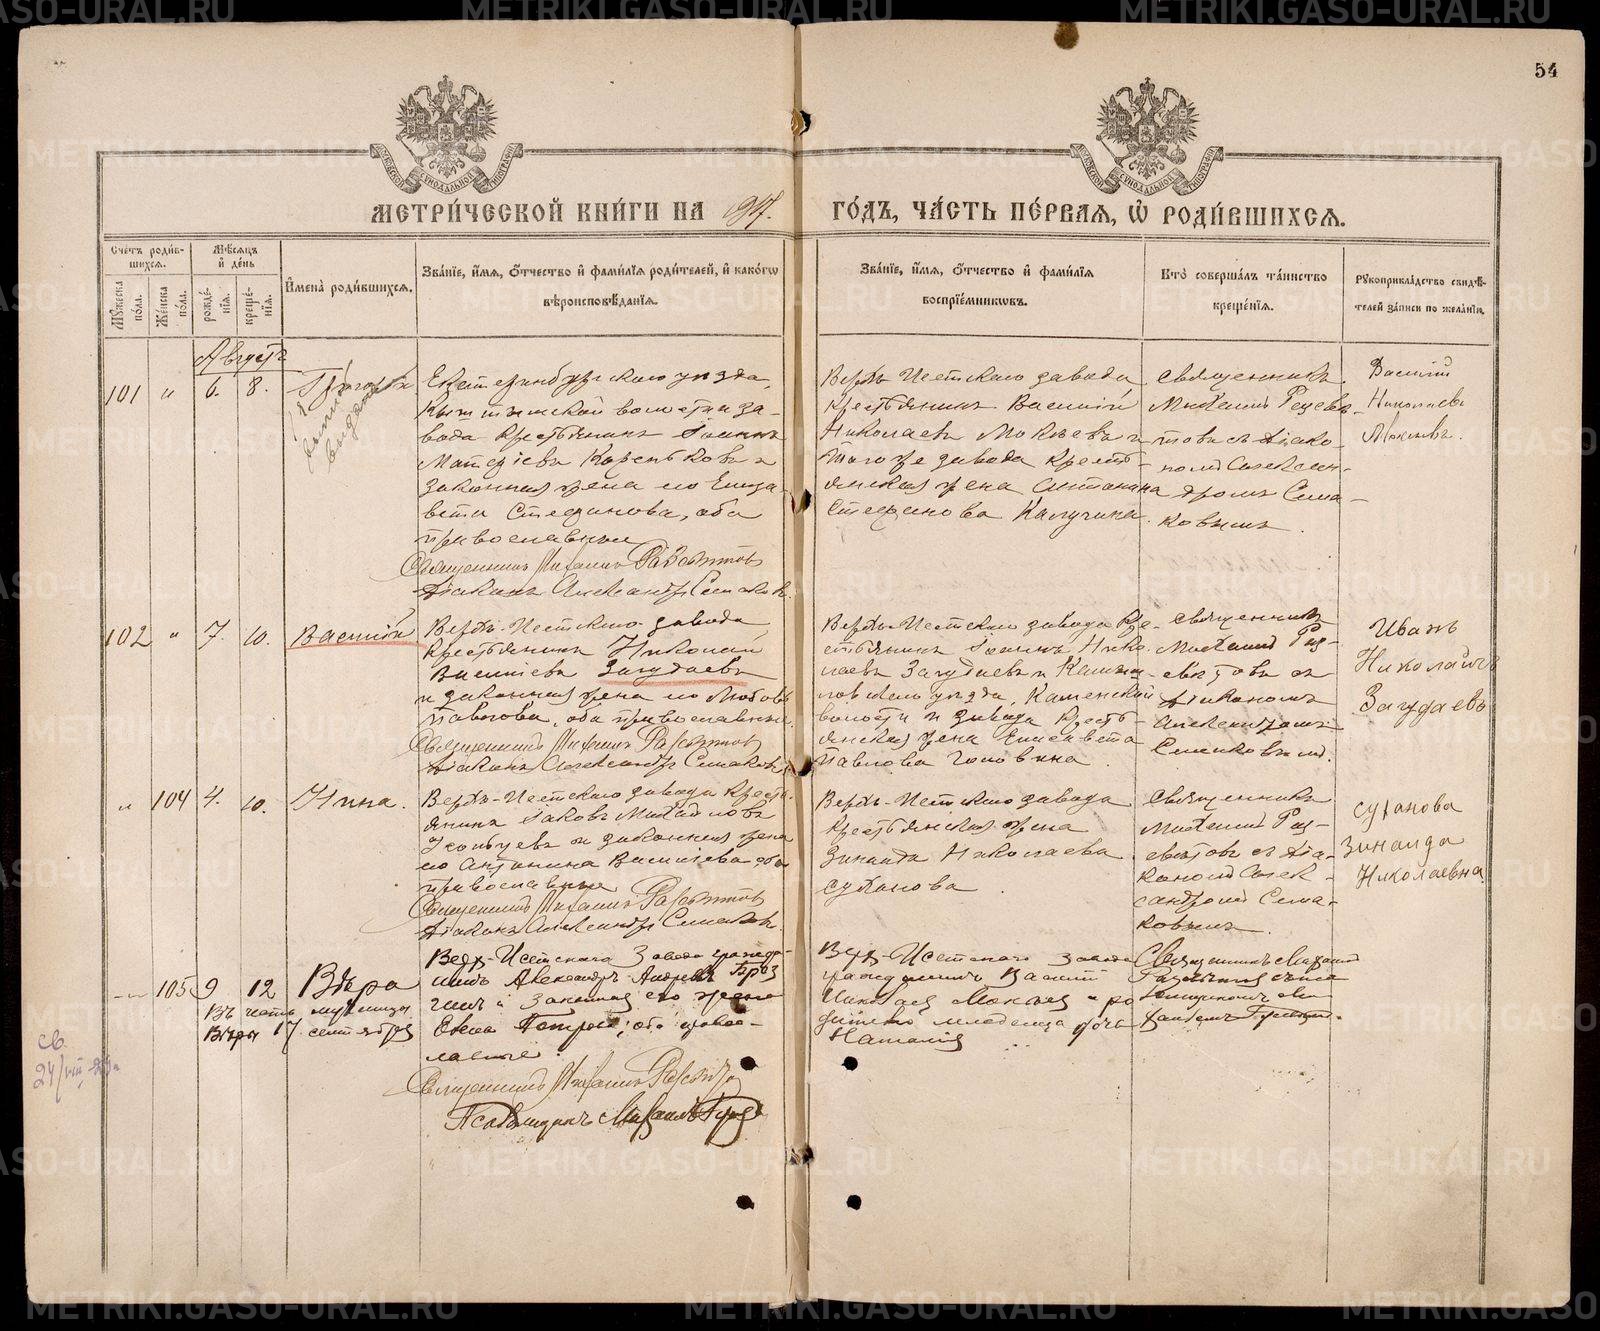 54
МЕТРИ́ЧЕСКОЙ КНИ́ГИ НА 1917.
ГО́ДЪ, ЧА́СТЬ ПЕ́РВАЯ, Ѽ РОДИ́ВШИХСЯ.
Сче́тъ роди́вшихся.
Му́жеска по́ла.
Же́нска по́ла.
Мѣ́сяцъ и де́нь
рожде́нїя.
креще́нїя.
Имена̀ роди́вшихся.
Зва́нїе, и́мя, о́тчество и фами́лїя роди́телей, и како́гѡ
вѣроисповѣ́данїя.
Зва́нїе, и́мя, о́тчество и фами́лїя
воспрїе́мникѡвъ.
Кто̀ соверша́лъ та́инство
креще́нїя.
Рукоприкла́дство свидѣ́-
телей за́писи по жела́нїю.
Августъ
101 " 6. 8. Григорій
Екатеринбургскаго уѣзда,
Кыштымской волости за-
вода крестьянинъ Іоаннъ
законная жена его Елиза-
вета Стефанова, оба
православные
Священникъ Михаилъ
Діаконъ Александръ Симаковъ
Верхъ-Исетскаго завода
крестьянинъ Василій
Николаевъ Мокѣевъ и
того же завода кресть-
янская жена Антонина
Стефанова Калугина.
Священникъ
Михаилъ
съ діако-
номъ Алексан-
дромъ Сима-
ковымъ
Василій
Николаевъ
Мокеевъ.
102 " 7. 10. Василій
Верхъ-Исетскаго завода
крестьянинъ Николай
Васильевъ Загудаевъ
и законная жена его Любовь
Павлова, оба православные.
Священникъ Михаилъ
Діаконъ Александръ Симаковъ
Верхъ-Исетскаго завода кре-
стьянинъ Іоаннъ Нико-
лаевъ Загудаевъ и Камыш-
ловскаго уѣзда, Каменской
волости и завода кресть-
янская жена Елисавета
Павлова Головина.
Священникъ
Михаилъ
съ
діакономъ
Александромъ
Симаковымъ.
Иванъ
Николаичъ
Загудаевъ
" 104 4. 10. Нина.
Верхъ-Исетскаго завода кресть-
янинъ Іаковъ Михайловъ
и законная жена
его Антонина Васильева оба
православные
Священникъ Михаилъ
Діаконъ Александръ Симаковъ
Верхъ-Исетскаго завода
крестьянская жена
Зинаида Николаева
Суханова
Священникъ
Михаилъ
съ діа-
кономъ Алек-
сандромъ Сима-
ковымъ
Суханова
Зинаида
Николаевна
" 105 9 12 Вѣра
Въ честь мученицы
Вѣры 17 сентября
Верх-Исетскаго Завода гражда-
нинъ Александръ Андреевъ
и законная его жена
Петрова, оба право-
славные
Священникъ Михаилъ
Псаломщикъ Михаилъ
Верх-Исетскаго завода
гражданинъ Василій
Николаев Мокеев и ро-
дителей младенца дочь
Наталия
Священникъ Михаилъ
съ псаломщикомъ Ми-
хаиломъ
св.
METRIKI.GASO-URAL.RU